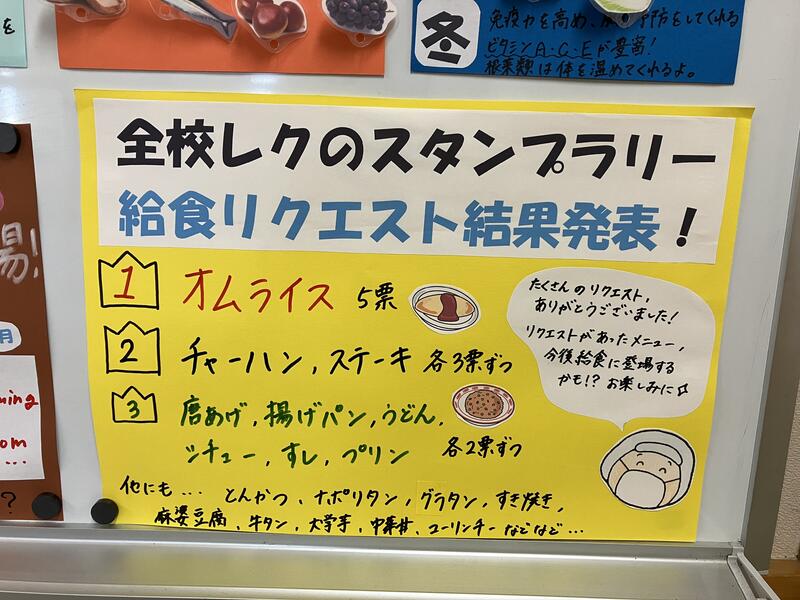 を
冬
免疫力を高め、 予防をしてくれる
ビタミンA・C・Eが豊富!
根菜類は体を温めてくれるよ。
全校レクのスタンプラリー
給食リクエスト結果発表!
場!
1 オムライス 5票
2 チャーハン,ステーキ 各3票ずつ
3 唐あげ,揚げパン,うどん,
シチュー,すし,プリン 各2票ずつ
他にも… とんかつ,ナポリタン,グラタン,すき焼き,
麻婆豆腐,牛タン,大学芋,中華丼,ユーリンチー などなど…
たくさんのリクエスト,
ありがとうございました!
リクエストがあったメニュー,
今後給食に登場する
かも!? お楽しみに☆
月
om
…
?